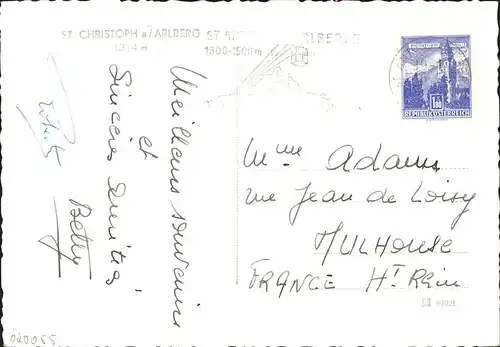 ST CHRISTOPH a/ARLBERG ST
1800-1500 m
REPUBLIK ÖSTERREICH
Meilleurs souvenirs
et
Sincères Amitiés
Betty
Mme Adams
rue Jean de Loisy
MULHOUSE
FRANCE Ht Rhin
020055